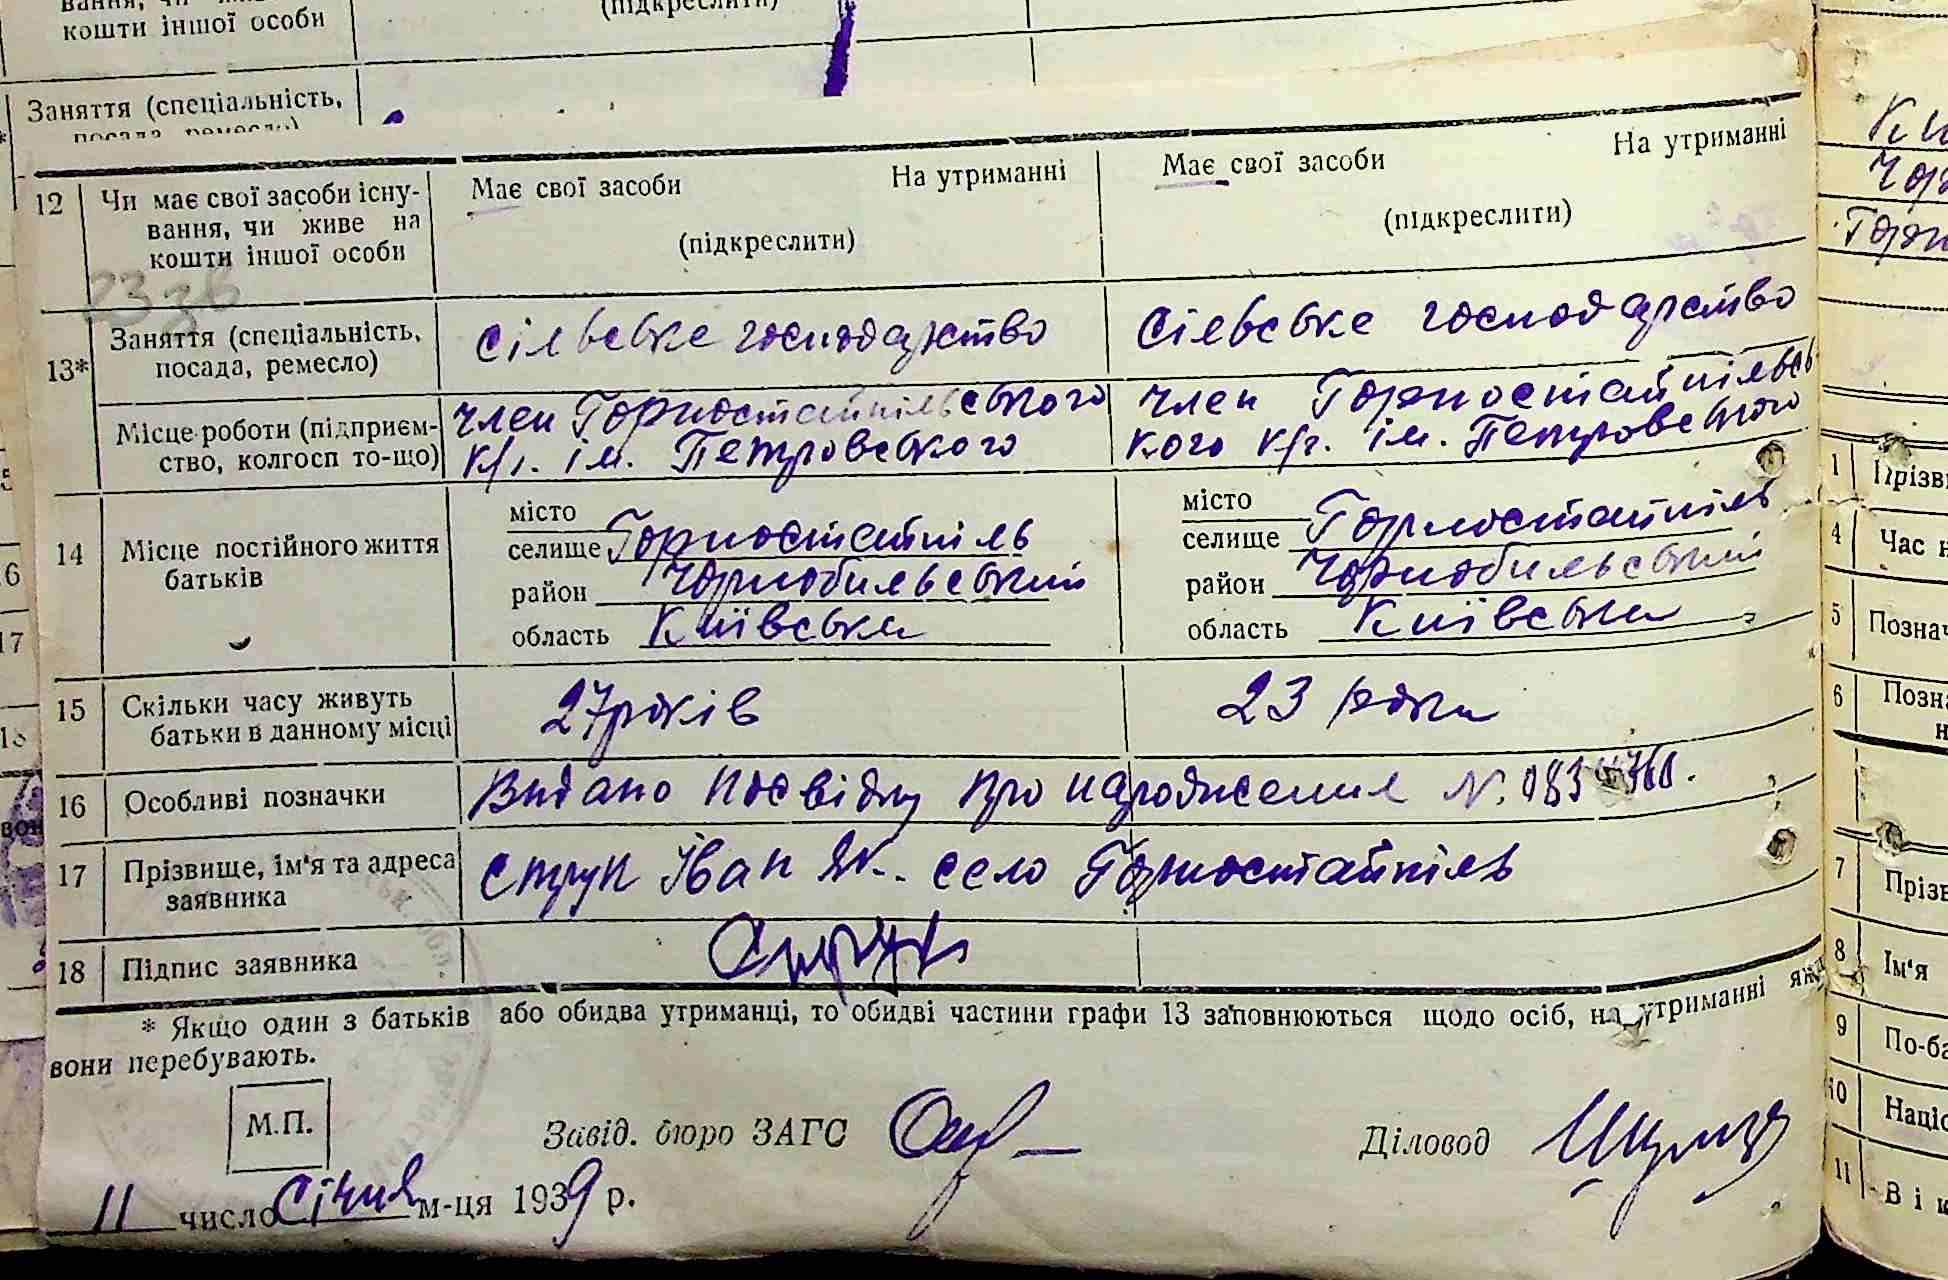 кошти іншої особи
(підкреслити)
Заняття (спеціальність,
12 Чи має свої засоби існу-
вання, чи живе на
кошти іншої особи
Має свої засоби На утриманні
(підкреслити)
Має свої засоби На утриманні
(підкреслити)
13* Заняття (спеціальність,
посада, ремесло)
сільське господарство
сільське господарство
Місце роботи (підприєм-
ство, колгосп то-що)
член Горностайпільського
к/г. ім. Петровського
член Горностайпільсь
кого к/г. ім. Петровського
14 Місце постійного життя
батьків
місто
селище Горностайпіль
район Чорнобильський
область Київська
місто
селище Горностайпіль
район Чорнобильський
область Київська
15 Скільки часу живуть
батьки в данному місці
27 років
23 роки
16 Особливі позначки
Видано посвідку про народження N.
17 Прізвище, ім'я та адреса
заявника
Струк Іван Як.. село Горностайпіль
18 Підпис заявника
Струк
* Якщо один з батьків або обидва утриманці, то обидві частини графи 13 заповнюються щодо осіб, на утриманні яких
вони перебувають.
М.П.
Завід. бюро ЗАГС
Діловод
11 число Січня м-ця 1939 р.
1 Прізв
4 Час н
5 Познач
6 Позна
7 Прізв
8 Ім'я
9 По-ба
10 Націо
11 Вік